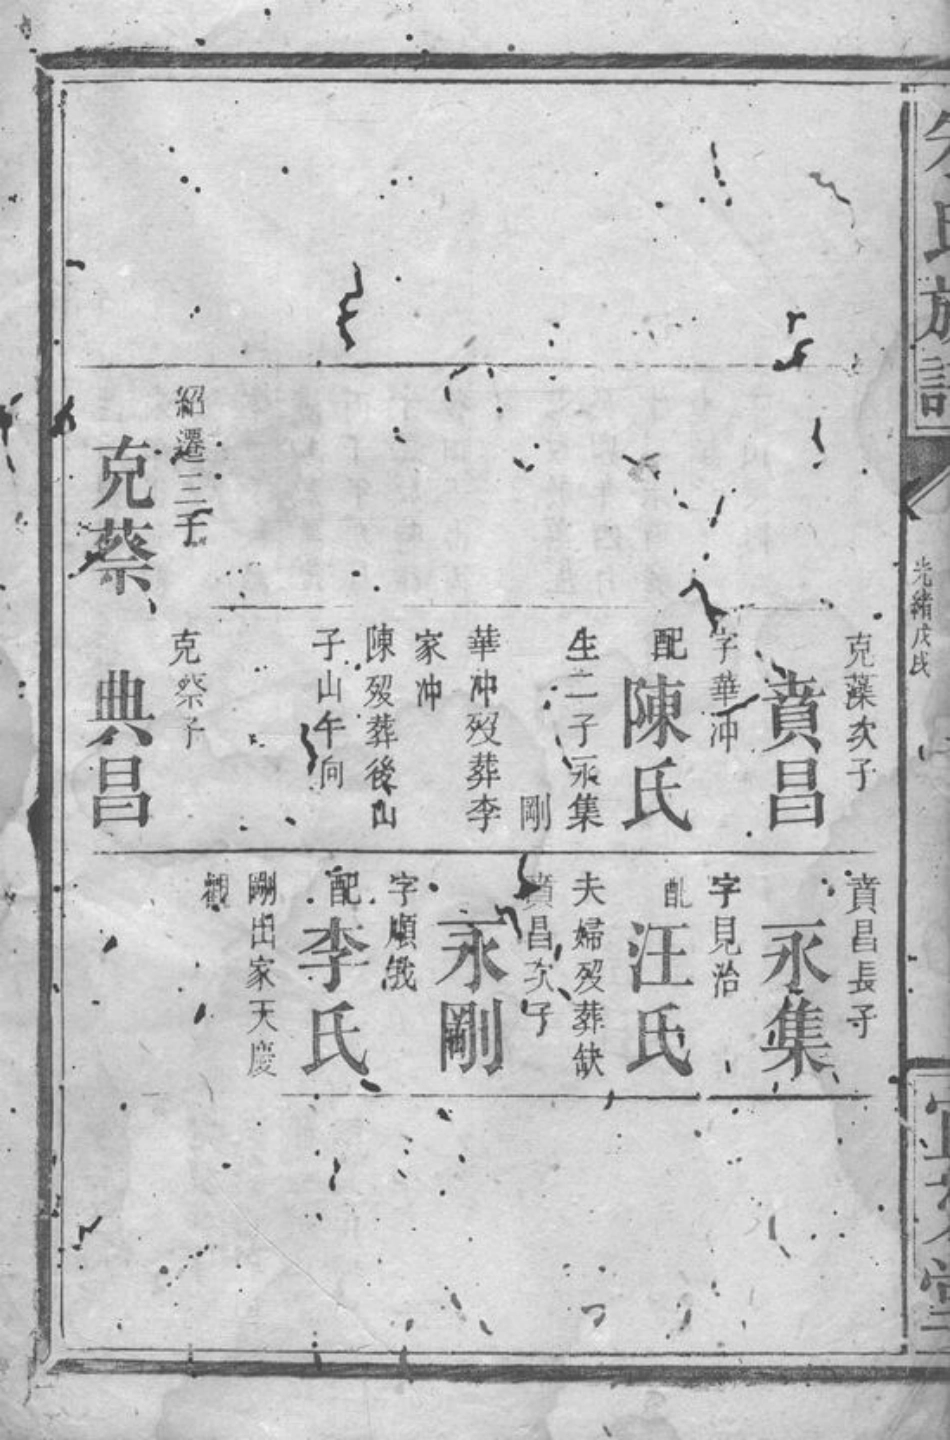 氏族譜
光緒戊戌
紹遷三子
克蔡
克藻次子
賁昌
字華冲
配
陳氏
生二子永集
剛
華冲歿葬李
家冲
陳歿葬後山
子山午向
克祭子
典昌
賁昌長子
永集
字見治
配
汪氏
夫婦歿葬缺
賁昌次子
永剛
字順
配
李氏
剛出家天慶
觀
堂